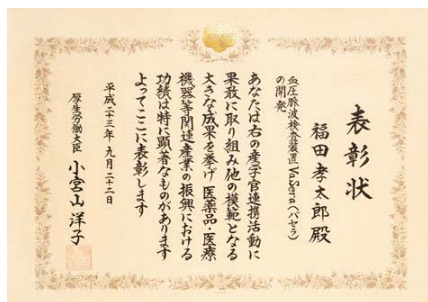 表彰状
福田孝太郎 殿
血圧脈波検査装置 VaSera(バセラ)
の開発
あなたは右の産学官連携活動に
果敢に取り組み他の模範となる
大きな成果を挙げ 医薬品・医療
機器等関連産業の振興における
功績は特に顕著なものがあります
よってここに表彰します
平成二十三年 九月 二十二日
厚生労働大臣 小宮山 洋子